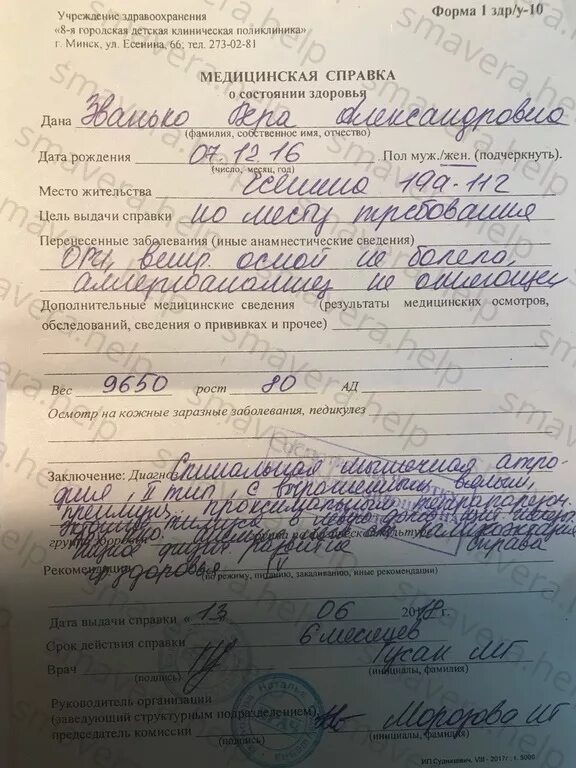 Учреждение здравоохранения
«8-я городская детская клиническая поликлиника»
г. Минск, ул. Есенина, 66; тел. 273-02-81
Форма 1 здр/у-10
МЕДИЦИНСКАЯ СПРАВКА
о состоянии здоровья
Дана Званько Вера Александровна
(фамилия, собственное имя, отчество)
Дата рождения 07.12.16 Пол муж./жен. (подчеркнуть).
(число, месяц, год)
Место жительства Есенина 19а-112
Цель выдачи справки по месту требования
Перенесенные заболевания (иные анамнестические сведения)
ОРИ, ветр. оспой не болела,
не
Дополнительные медицинские сведения (результаты медицинских осмотров,
обследований, сведения о прививках и прочее)
Вес 9650 рост 80 АД
Осмотр на кожные заразные заболевания, педикулез
Заключение: Диагноз Спинальная мышечная атро-
фия, II тип, с выраженным вялым,
преимущ. проксимальным тетрапарезом.
группа здоровья
Рекомендации
(по режиму, питанию, закаливанию, иные рекомендации)
Дата выдачи справки « 13 06 2018 г.
Срок действия справки 6 месяцев
Врач Гусак МГ
(подпись) (инициалы, фамилия)
Руководитель организации
(заведующий структурным подразделением)
председатель комиссии Морозова
(подпись) (инициалы, фамилия)
ИП Судникевич. VIII - 2017г. т. 5000
smavera.help